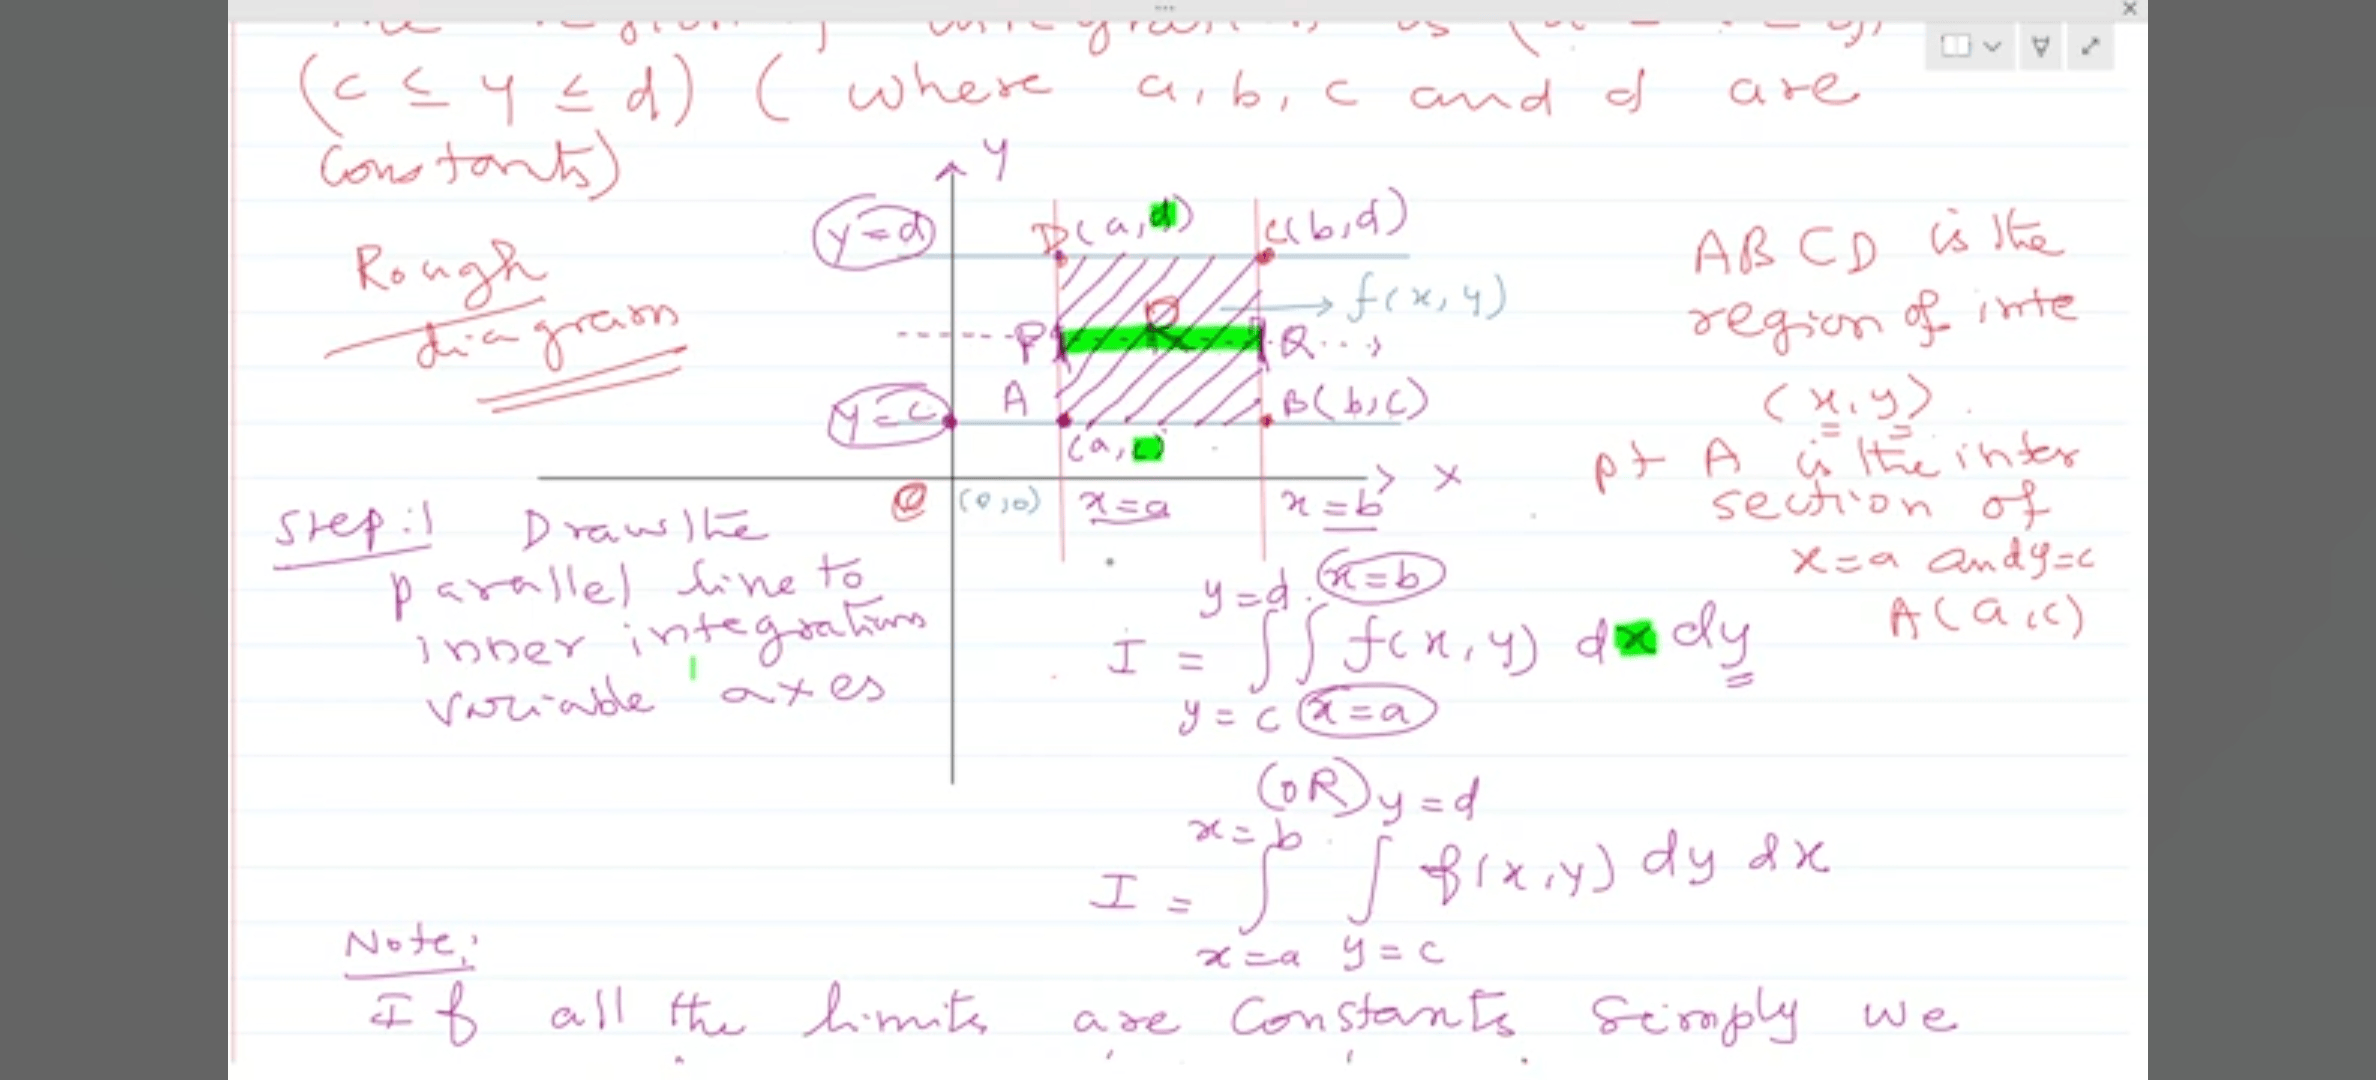 (c ≤ y ≤ d) ( where a, b, c and d are
constants)
Y
y=d
D(a,d)
C(b,d)
Rough
diagram
f(x,y)
P
Q
y=c
A
B(b,c)
(a,c)
X
(0,0)
x=a
x=b
ABCD is the
region of inte
(x,y).
pt A is the inter
section of
x=a and y=c
A(a,c)
Step:1 Draw the
parallel line to
inner integration
variable axes
y=d x=b
I = ∫∫ f(x,y) dx dy
y=c x=a
(OR)
x=b y=d
I = ∫ ∫ f(x,y) dy dx
x=a y=c
Note:
If all the limits are constants simply we